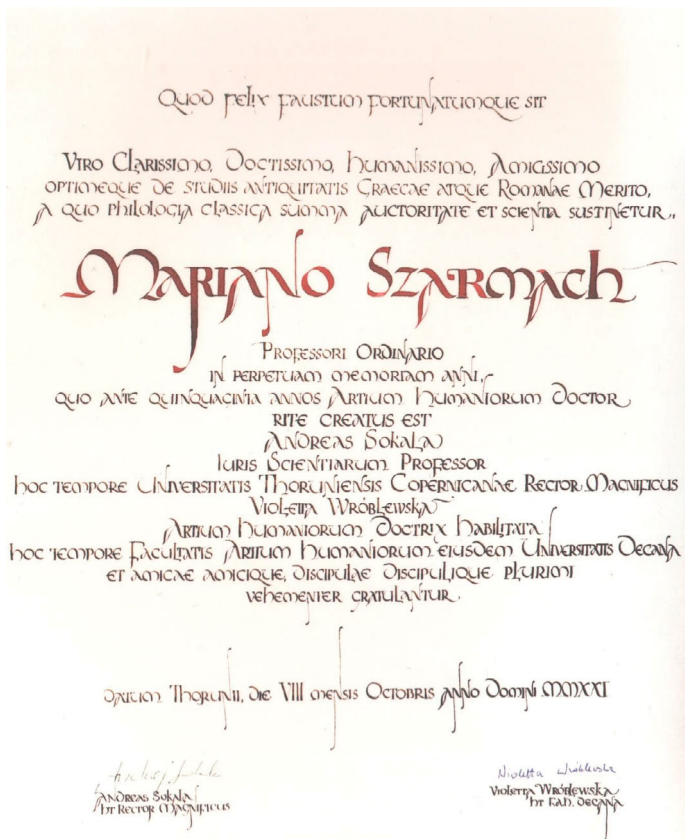 Quod felix faustum fortunatumque sit
Viro Clarissimo, Doctissimo, Humanissimo, Amicissimo
optimeque de studiis antiquitatis Graecae atque Romanae Merito,
a quo philologia classica summa auctoritate et scientia sustinetur,
Mariano Szarmach
Professori Ordinario
in perpetuam memoriam anni,
quo ante quinquaginta annos Artium Humaniorum Doctor
rite creatus est
Andreas Sokala
Iuris Scientiarum Professor
hoc tempore Universitatis Thoruniensis Copernicanae Rector Magnificus
Violetta Wróblewska
Artium Humaniorum Doctrix Habilitata
hoc tempore Facultatis Artium Humaniorum eiusdem Universitatis Decana
et amicae amicique, discipulae discipulique plurimi
vehementer gratulantur.
Datum Thorunii, die VIII mensis Octobris anno Domini MMXXI
Andrzej Sokala
Violetta Wróblewska
Andreas Sokala
ht Rector Magnificus
Violetta Wróblewska
ht Fah. Decana